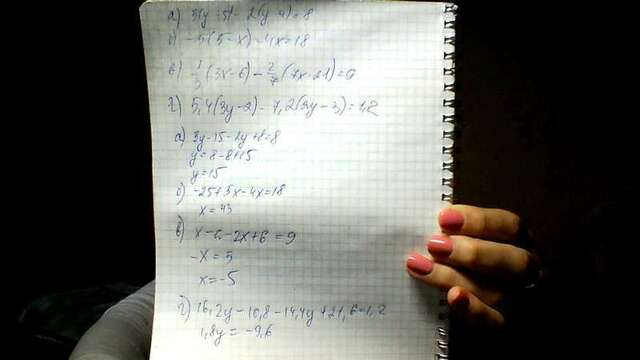 а) 3(y-5)-2(y-4)=8
б) -5(5-x)-4x=18
в) 1/3(3x-6)-2/7(7x-21)=9
г) 5,4(3y-2)-7,2(2y-3)=1,2
а) 3y-15-2y+8=8
y=8-8+15
y=15
б) -25+5x-4x=18
x=43
в) x-2-2x+6=9
-x=5
x=-5
г) 16,2y-10,8-14,4y+21,6=1,2
1,8y=-9,6